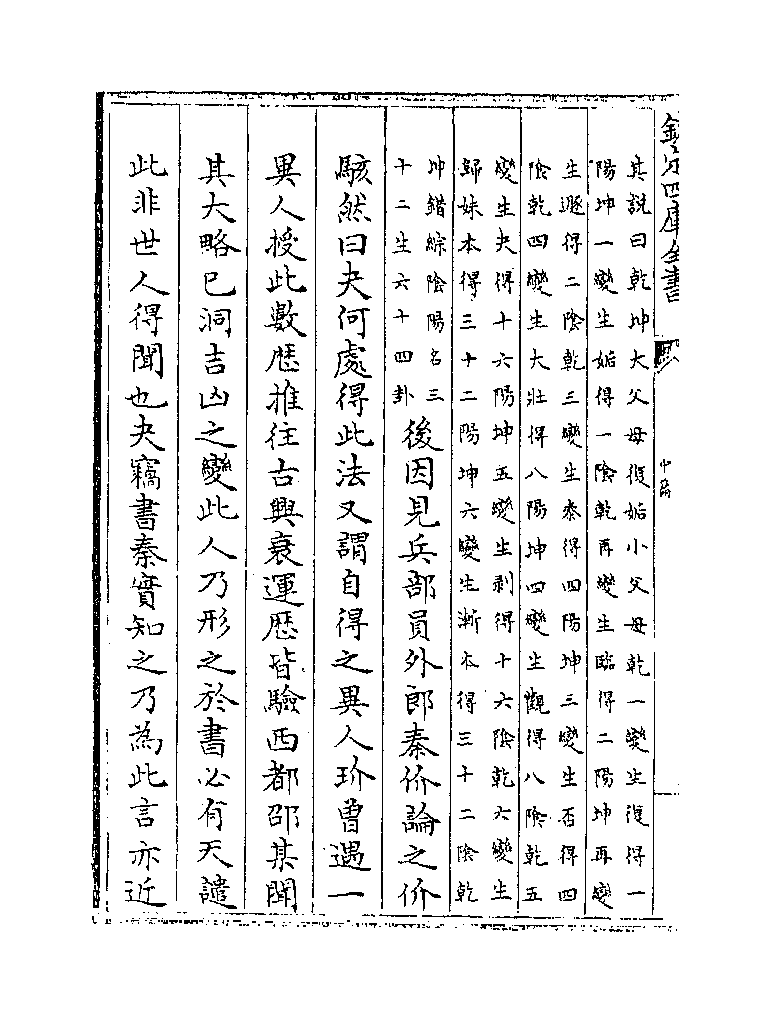 欽定四庫全書
其說曰乾坤大父母復姤小父母乾一變生復得一
陽坤一變生姤得一陰乾再變生臨得二陽坤再變
生遯得二陰乾三變生泰得四陽坤三變生否得四
陰乾四變生大壯得八陽坤四變生觀得八陰乾五
變生夬得十六陽坤五變生剥得十六陰乾六變生
歸妹本得三十二陽坤六變生漸本得三十二陰乾
坤錯綜陰陽名三
十二生六十四卦
後因見兵部員外郎秦价論之价
駭然曰夬何處得此法又謂自得之異人玠曾遇一
異人授此數厯推往古興衰運厯皆驗西都邵某聞
其大略已洞吉凶之變此人乃形之於書必有天譴
此非世人得聞也夬竊書秦實知之乃為此言亦近